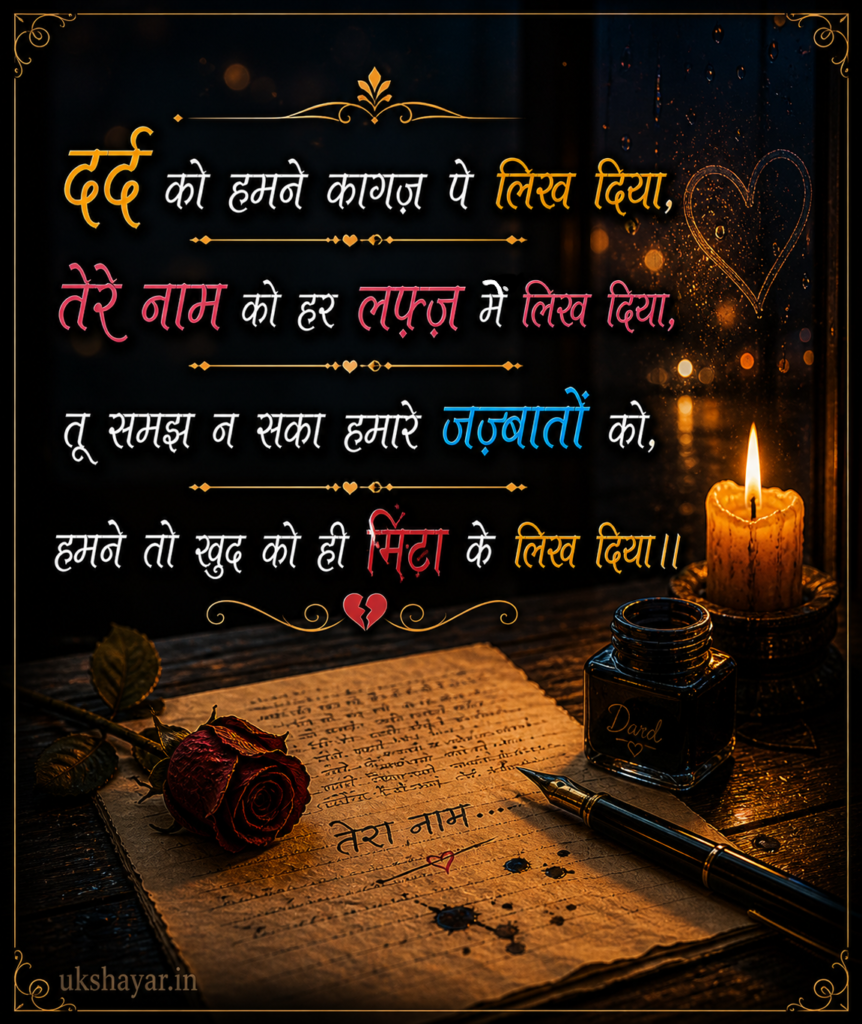 दर्द को हमने कागज़ पे लिख दिया,
तेरे नाम को हर लफ़्ज़ में लिख दिया,
तू समझ न सका हमारे जज़्बातों को,
हमने तो खुद को ही मिटा के लिख दिया।।
Dard
तेरा नाम....
ukshayar.in